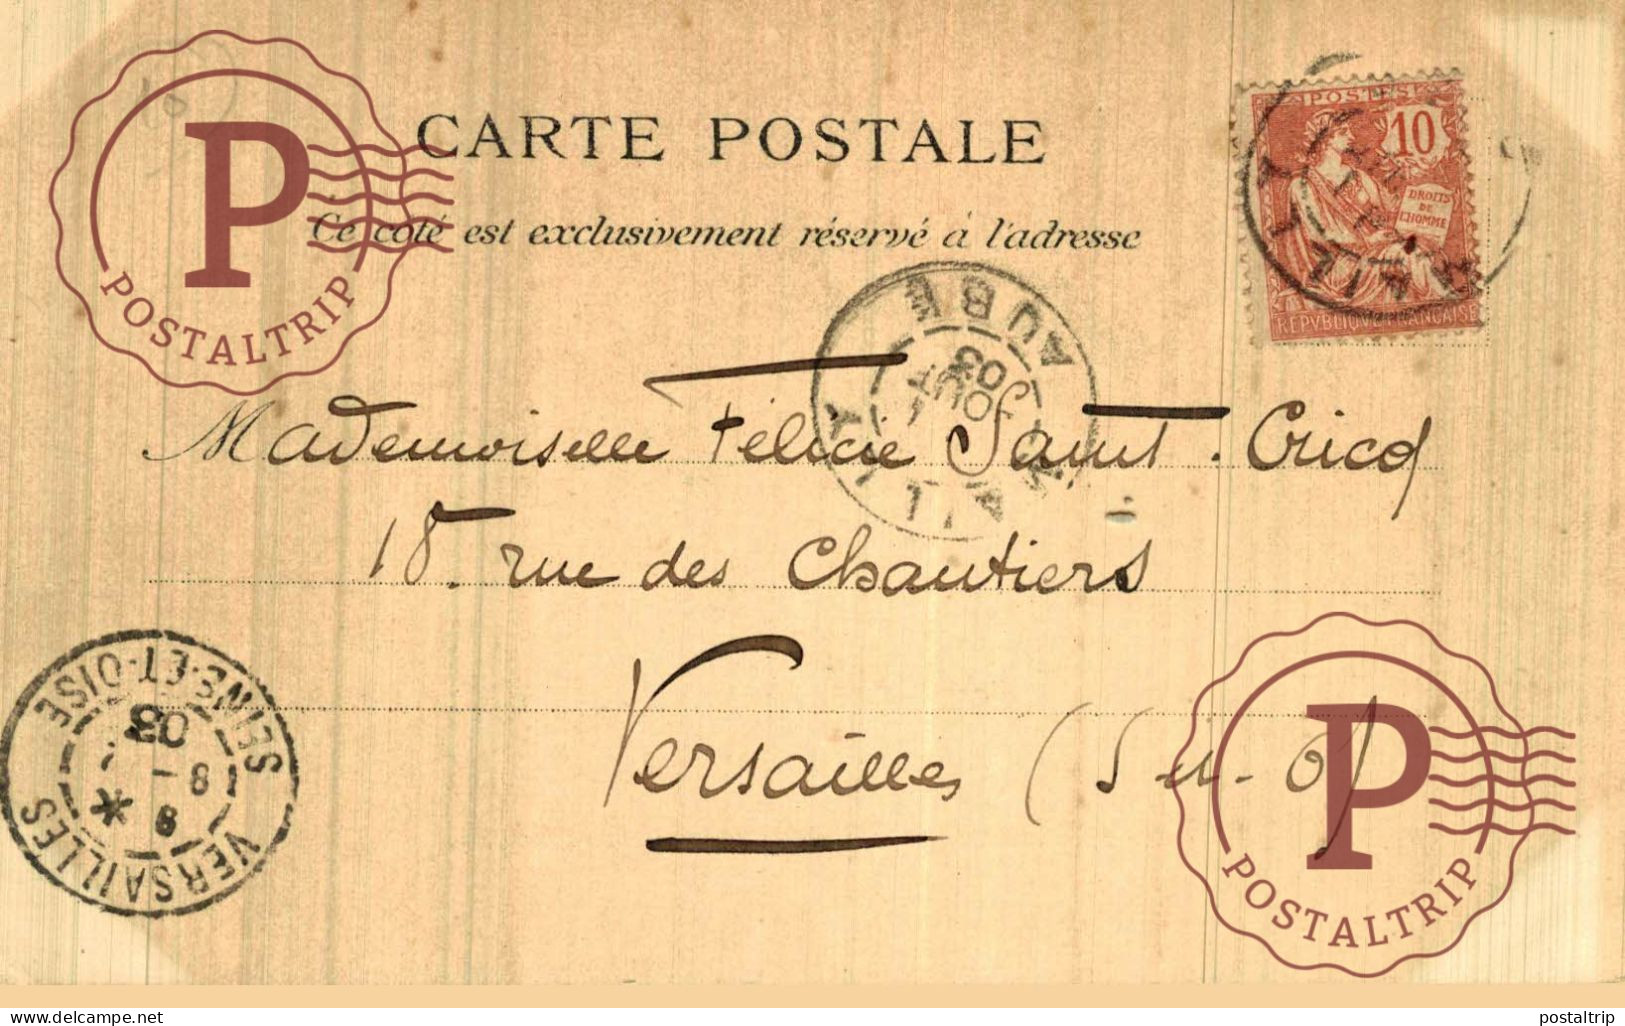 CARTE POSTALE
Ce coté est exclusivement réservé à l'adresse
POSTES
10
DROITS
DE
L'HOMME
REPVBLIQVE FRANÇAISE
MAILLY
MAILLY
AUBE
AOUT
03
Mademoiselle Félicie Saint-Cricq
18. rue des Chantiers
Versailles (S et O)
VERSAILLES
SEINE-ET-OISE
8 - 8
03
P
POSTALTRIP
P
POSTALTRIP
www.delcampe.net
postaltrip